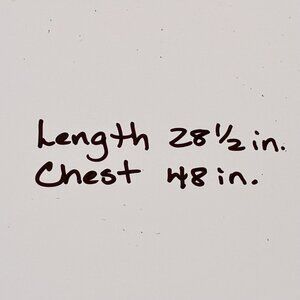 Length 28 1/2 in.
Chest 48 in.